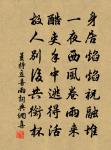 身居焰焰祝融堆
一夜西風卷雨來
酷吏手中逃得活
故人別後共銜杯
姜特立喜雨詞典網書